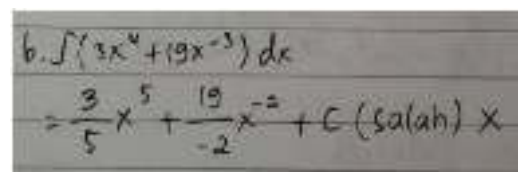 6. ∫(3x⁴ + 19x⁻³) dx
= 3/5 x⁵ + 19/-2 x⁻² + C (salah) X